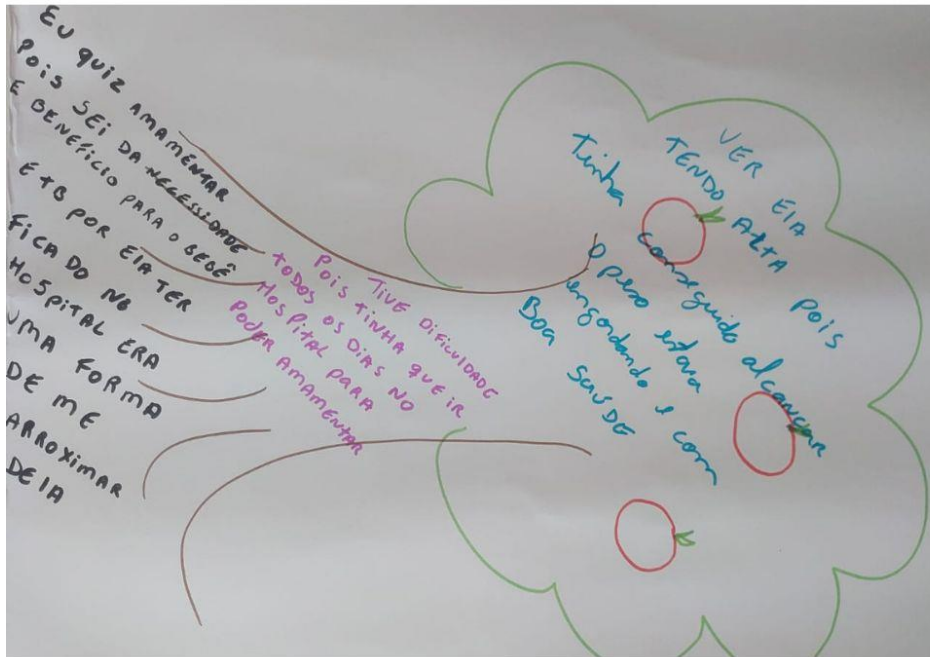 EU QUIZ AMAMENTAR
POIS SEI DA NECESSIDADE
E BENEFÍCIO PARA O BEBÊ
E TB POR ELA TER
FICADO NO
HOSPITAL ERA
UMA FORMA
DE ME
APROXIMAR
DELA
TIVE DIFICULDADE
POIS TINHA QUE IR
TODOS OS DIAS NO
HOSPITAL PARA
PODER AMAMENTAR
VER ELA
TENDO ALTA POIS
Tinha conseguido alcançar
O peso estava
engordando e com
Boa SAUDE